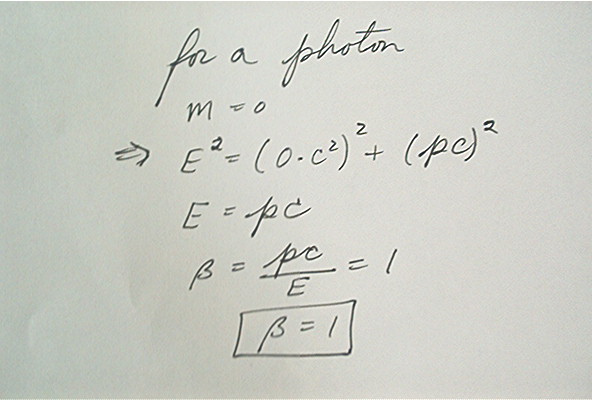 for a photon
m = 0
⇒ E² = (0·c²)² + (pc)²
E = pc
β = pc/E = 1
β = 1